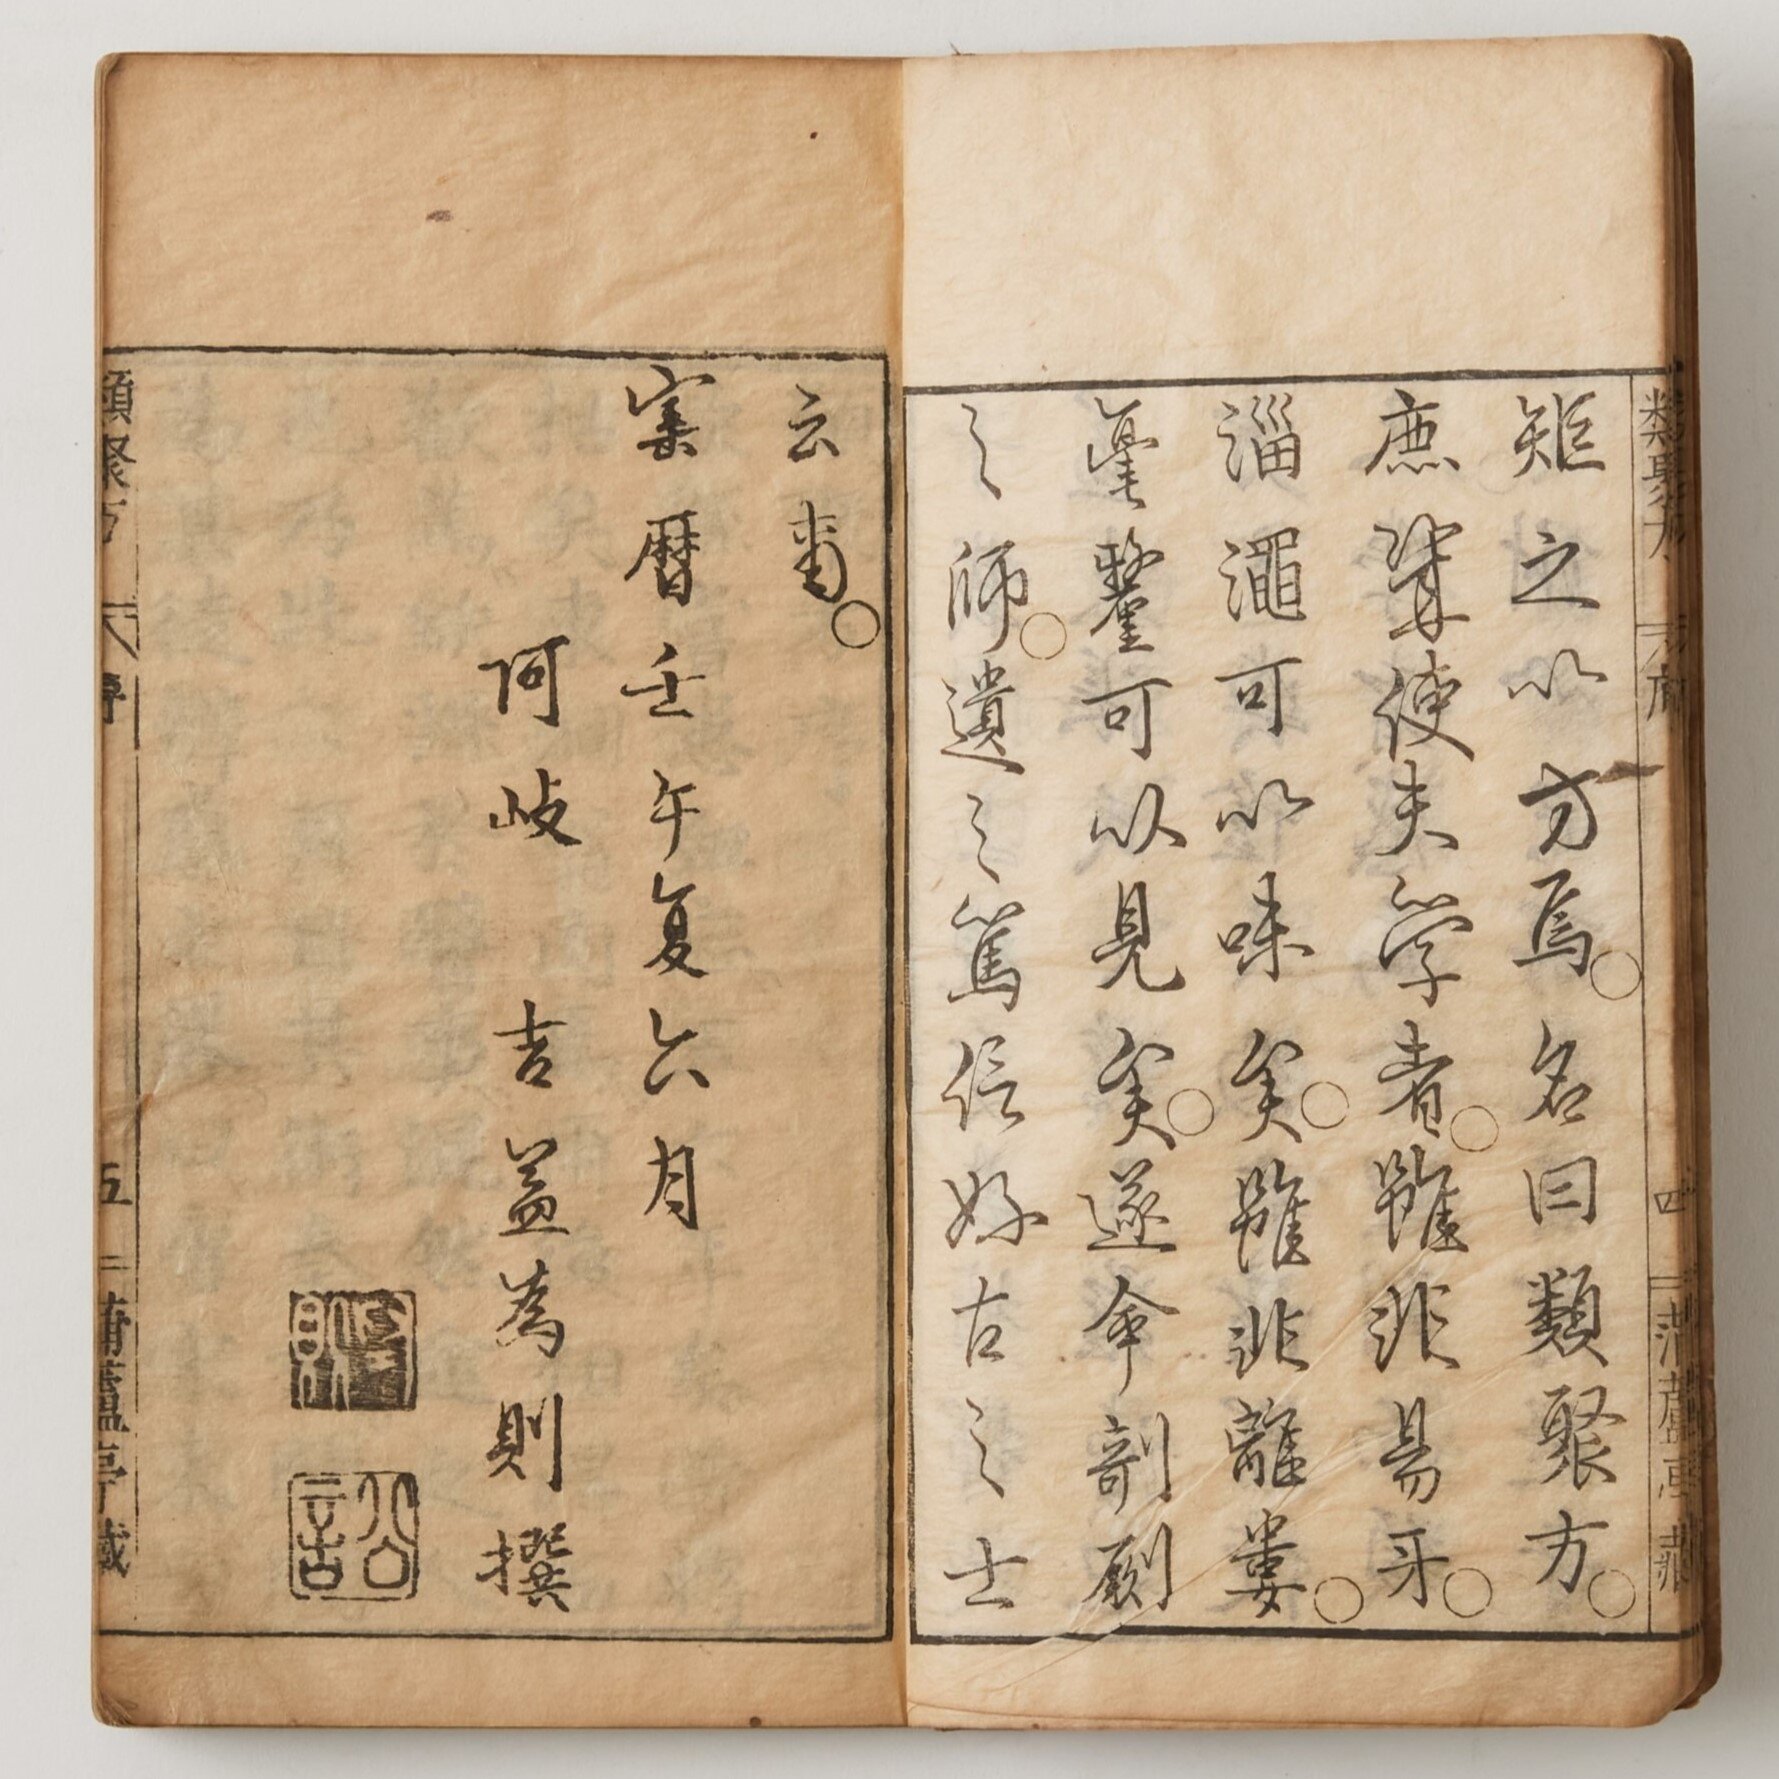 類聚方 序 四 蒲蘆亭蔵
矩之以方焉。名曰類聚方。
庶幾使夫学者。雖非易牙。
淄澠可以味矣。雖非離婁。
毫釐可以見矣。遂命剞劂
之師。遺之篤信好古之士
云爾。
宝暦壬午夏六月
阿岐 吉益為則撰
為則
類聚方 序 五 蒲蘆亭蔵